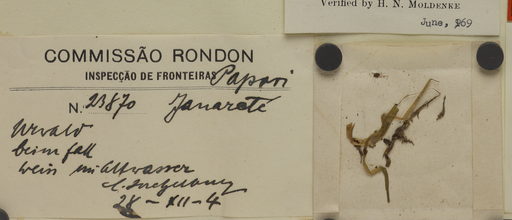 Verified by H. N. MOLDENKE
June, 1969
COMMISSÃO RONDON
INSPECÇÃO DE FRONTEIRAS Papori
N. 23870 Janareté
Urvald
beim fall
weiss im Altwasser
28-XII-4